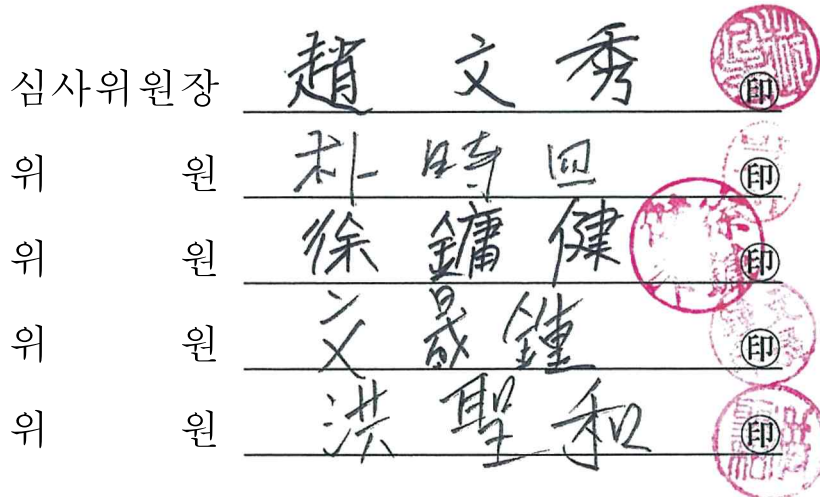 심사위원장 趙 文 秀 印
위 원 朴 時 四 印
위 원 徐 鏞 健 印
위 원 文 晟 鍾 印
위 원 洪 聖 和 印